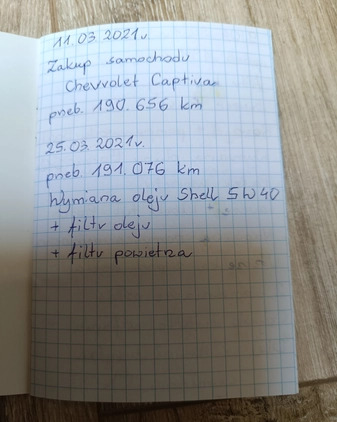 11.03.2021r.
Zakup samochodu
Chevrolet Captiva
przeb. 190.656 km
25.03.2021r.
przeb. 191.076 km
Wymiana oleju Shell 5W40
+ filtr oleju
+ filtr powietrza